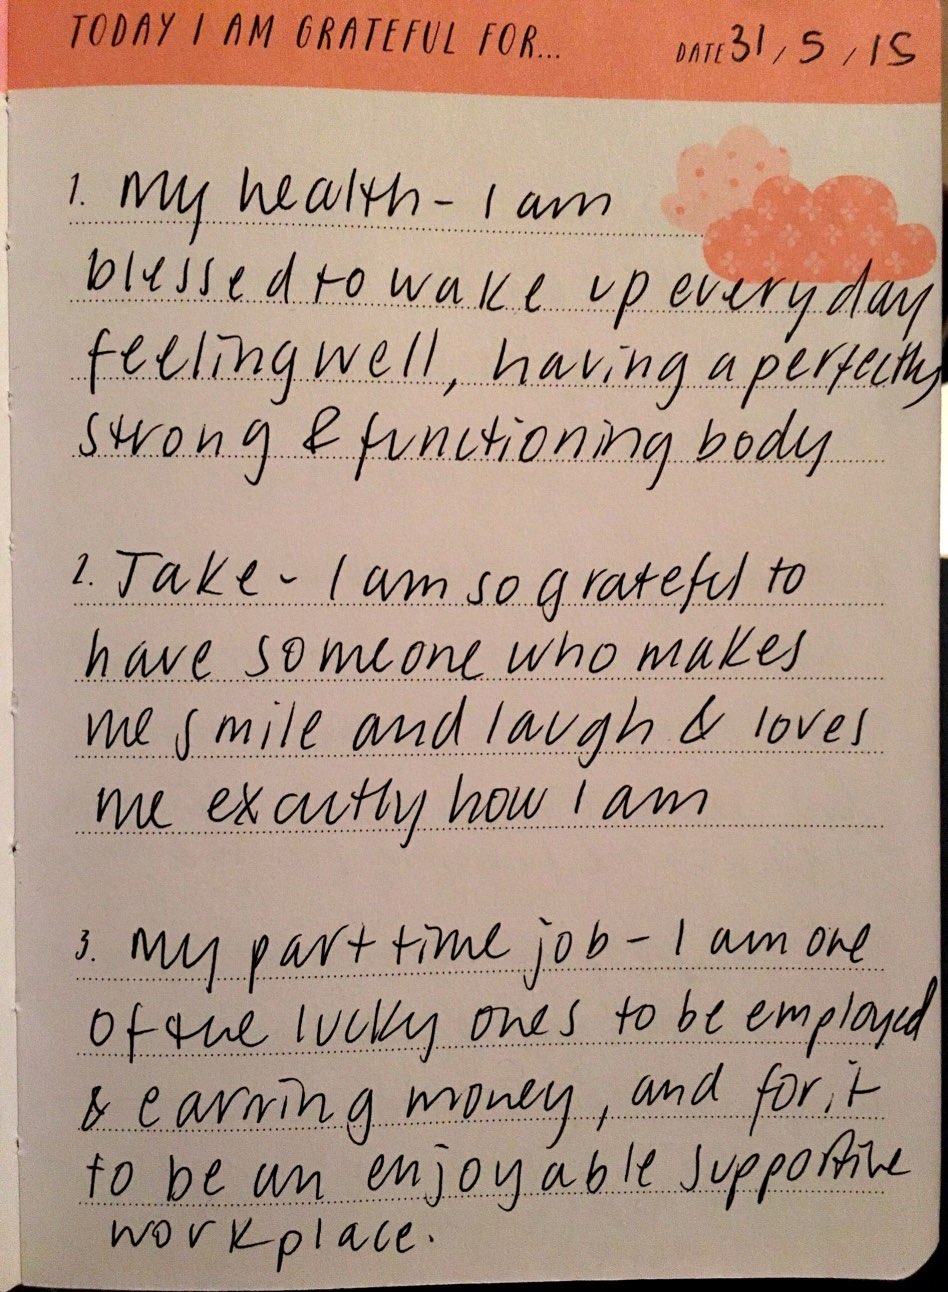 TODAY I AM GRATEFUL FOR... DATE 31 / 5 / 15
1. My health - I am
blessed to wake up everyday
feeling well, having a perfectly
strong & functioning body
2. Jake - I am so grateful to
have someone who makes
me smile and laugh & loves
me exactly how I am
3. My part time job - I am one
of the lucky ones to be employed
& earning money, and for it
to be an enjoyable supportive
workplace.